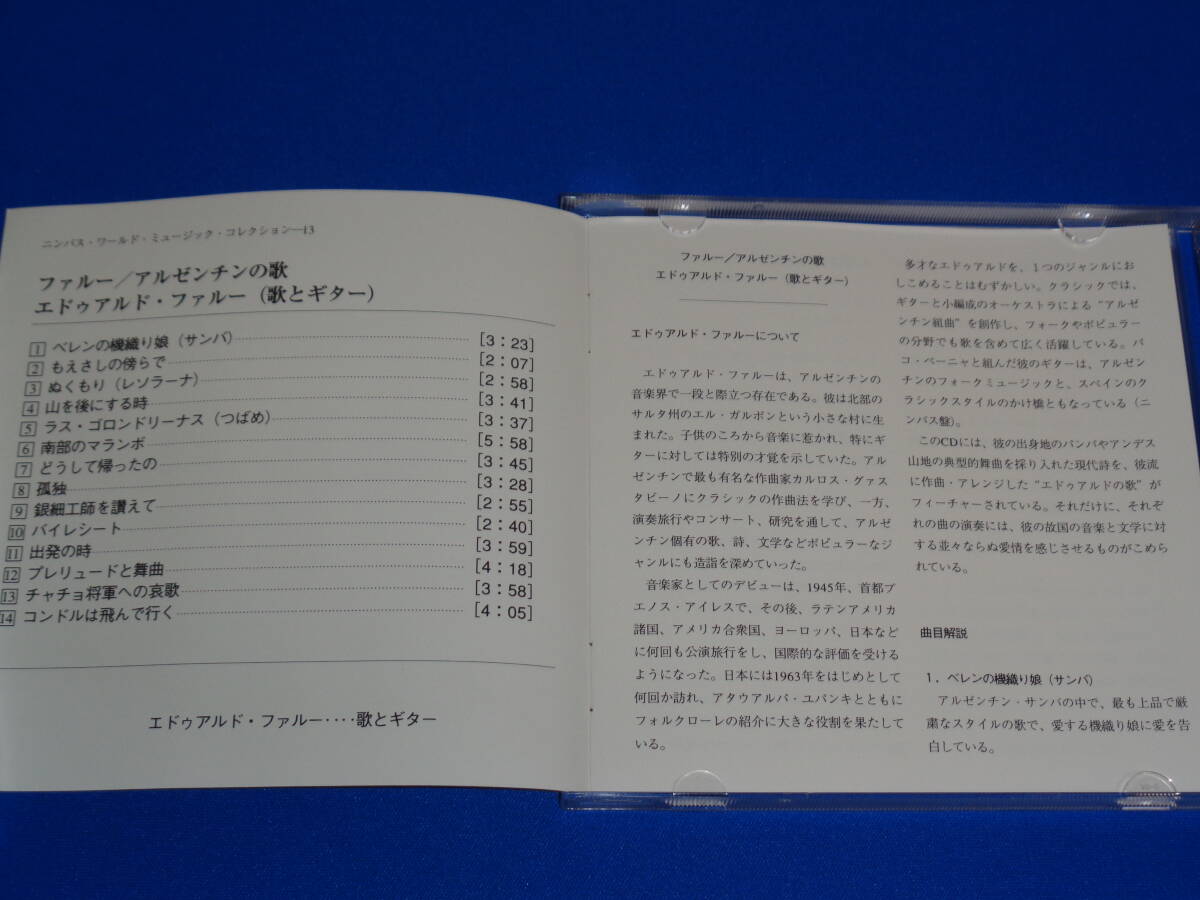 ニンバス・ワールド・ミュージック・コレクション—13
ファルー／アルゼンチンの歌
エドゥアルド・ファルー（歌とギター）
1 ベレンの機織り娘（サンバ） [3：23]
2 もえさしの傍らで [2：07]
3 ぬくもり（レソラーナ） [2：58]
4 山を後にする時 [3：41]
5 ラス・ゴロンドリーナス（つばめ） [3：37]
6 南部のマランボ [5：58]
7 どうして帰ったの [3：45]
8 孤独 [3：28]
9 銀細工師を讃えて [2：55]
10 バイレシート [2：40]
11 出発の時 [3：59]
12 プレリュードと舞曲 [4：18]
13 チャチョ将軍への哀歌 [3：58]
14 コンドルは飛んで行く [4：05]
エドゥアルド・ファルー‥‥歌とギター
ファルー／アルゼンチンの歌
エドゥアルド・ファルー（歌とギター）
エドゥアルド・ファルーについて
エドゥアルド・ファルーは、アルゼンチンの
音楽界で一段と際立つ存在である。彼は北部の
サルタ州のエル・ガルボンという小さな村に生
まれた。子供のころから音楽に惹かれ、特にギ
ターに対しては特別の才覚を示していた。アル
ゼンチンで最も有名な作曲家カルロス・グァス
タビーノにクラシックの作曲法を学び、一方、
演奏旅行やコンサート、研究を通して、アルゼ
ンチン個有の歌、詩、文学などポピュラーなジ
ャンルにも造詣を深めていった。
音楽家としてのデビューは、1945年、首都ブ
エノス・アイレスで、その後、ラテンアメリカ
諸国、アメリカ合衆国、ヨーロッパ、日本など
に何回も公演旅行をし、国際的な評価を受ける
ようになった。日本には1963年をはじめとして
何回か訪れ、アタウアルパ・ユパンキとともに
フォルクローレの紹介に大きな役割を果たして
いる。
多才なエドゥアルドを、1つのジャンルにお
しこめることはむずかしい。クラシックでは、
ギターと小編成のオーケストラによる“アルゼ
ンチン組曲”を創作し、フォークやポピュラー
の分野でも歌を含めて広く活躍している。パ
コ・ペーニャと組んだ彼のギターは、アルゼン
チンのフォークミュージックと、スペインのク
ラシックスタイルのかけ橋ともなっている（ニ
ンバス盤）。
このCDには、彼の出身地のパンパやアンデス
山地の典型的舞曲を採り入れた現代詩を、彼流
に作曲・アレンジした“エドゥアルドの歌”が
フィーチャーされている。それだけに、それぞ
れの曲の演奏には、彼の故国の音楽と文学に対
する並々ならぬ愛情を感じさせるものがこめら
れている。
曲目解説
1．ベレンの機織り娘（サンバ）
アルゼンチン・サンバの中で、最も上品で厳
粛なスタイルの歌で、愛する機織り娘に愛を告
白している。